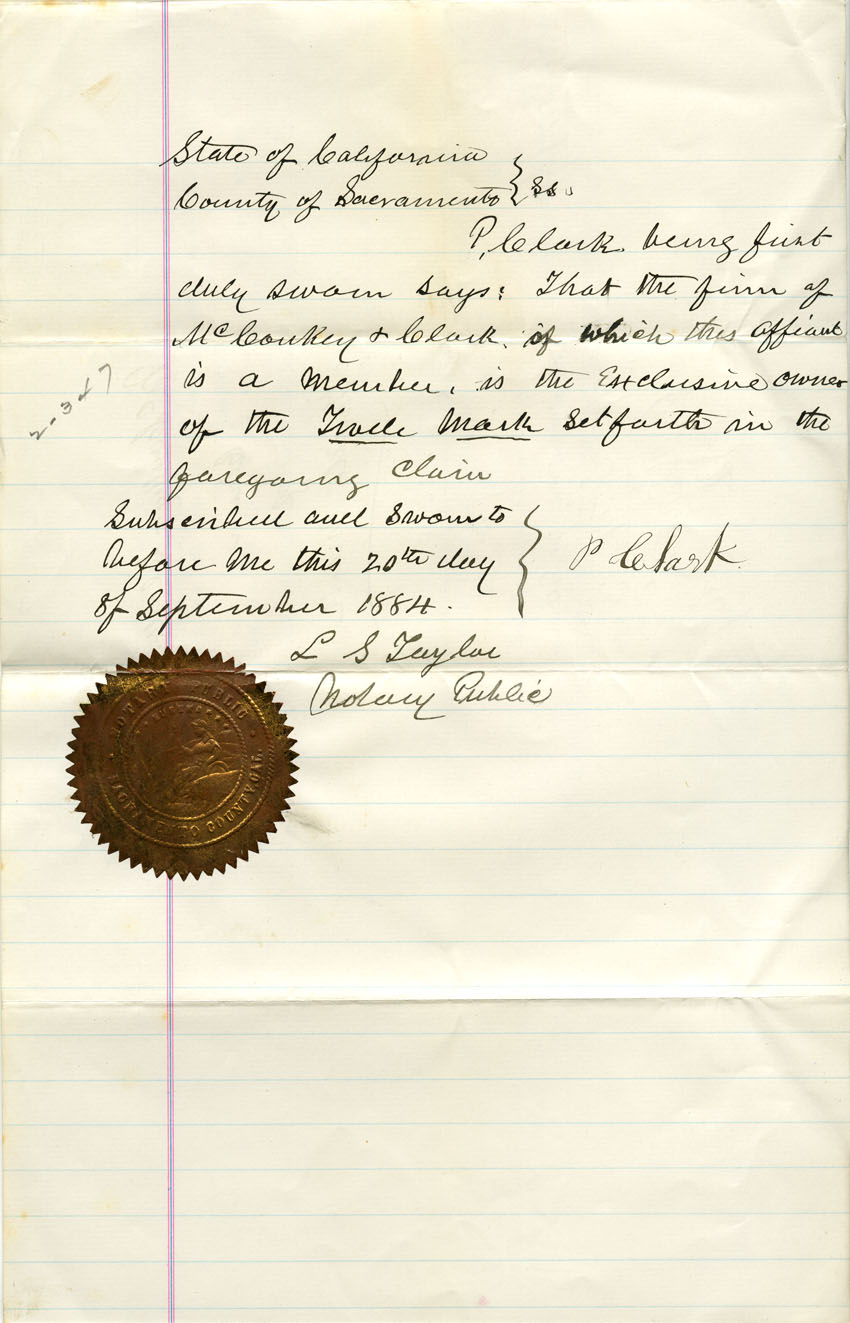 State of California
County of Sacramento } ss.
P. Clark being first
duly sworn says: That the firm of
McConkey & Clark, of which this affiant
is a member, is the Exclusive owner
of the Trade Mark set forth in the
foregoing claim
Subscribed and Sworn to
before me this 20th day
of September 1884.
P Clark
L S Taylor
Notary Public
NOTARY PUBLIC
SACRAMENTO COUNTY, CAL.